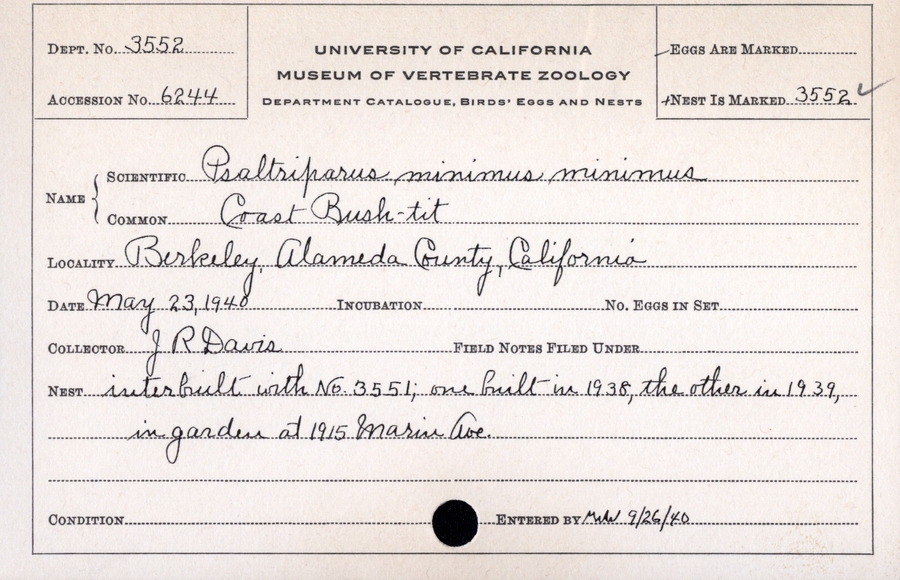 DEPT. No. 3552
ACCESSION No. 6244
UNIVERSITY OF CALIFORNIA
MUSEUM OF VERTEBRATE ZOOLOGY
DEPARTMENT CATALOGUE, BIRDS' EGGS AND NESTS
EGGS ARE MARKED
+NEST IS MARKED 3552 ✓
NAME
SCIENTIFIC Psaltriparus minimus minimus
COMMON Coast Bush-tit
LOCALITY Berkeley, Alameda County, California
DATE May 23, 1940 INCUBATION No. EGGS IN SET
COLLECTOR J R Davis FIELD NOTES FILED UNDER
NEST interbuilt with No. 3551; one built in 1938, the other in 1939,
in garden at 1915 Marin Ave.
CONDITION ENTERED BY 9/26/40